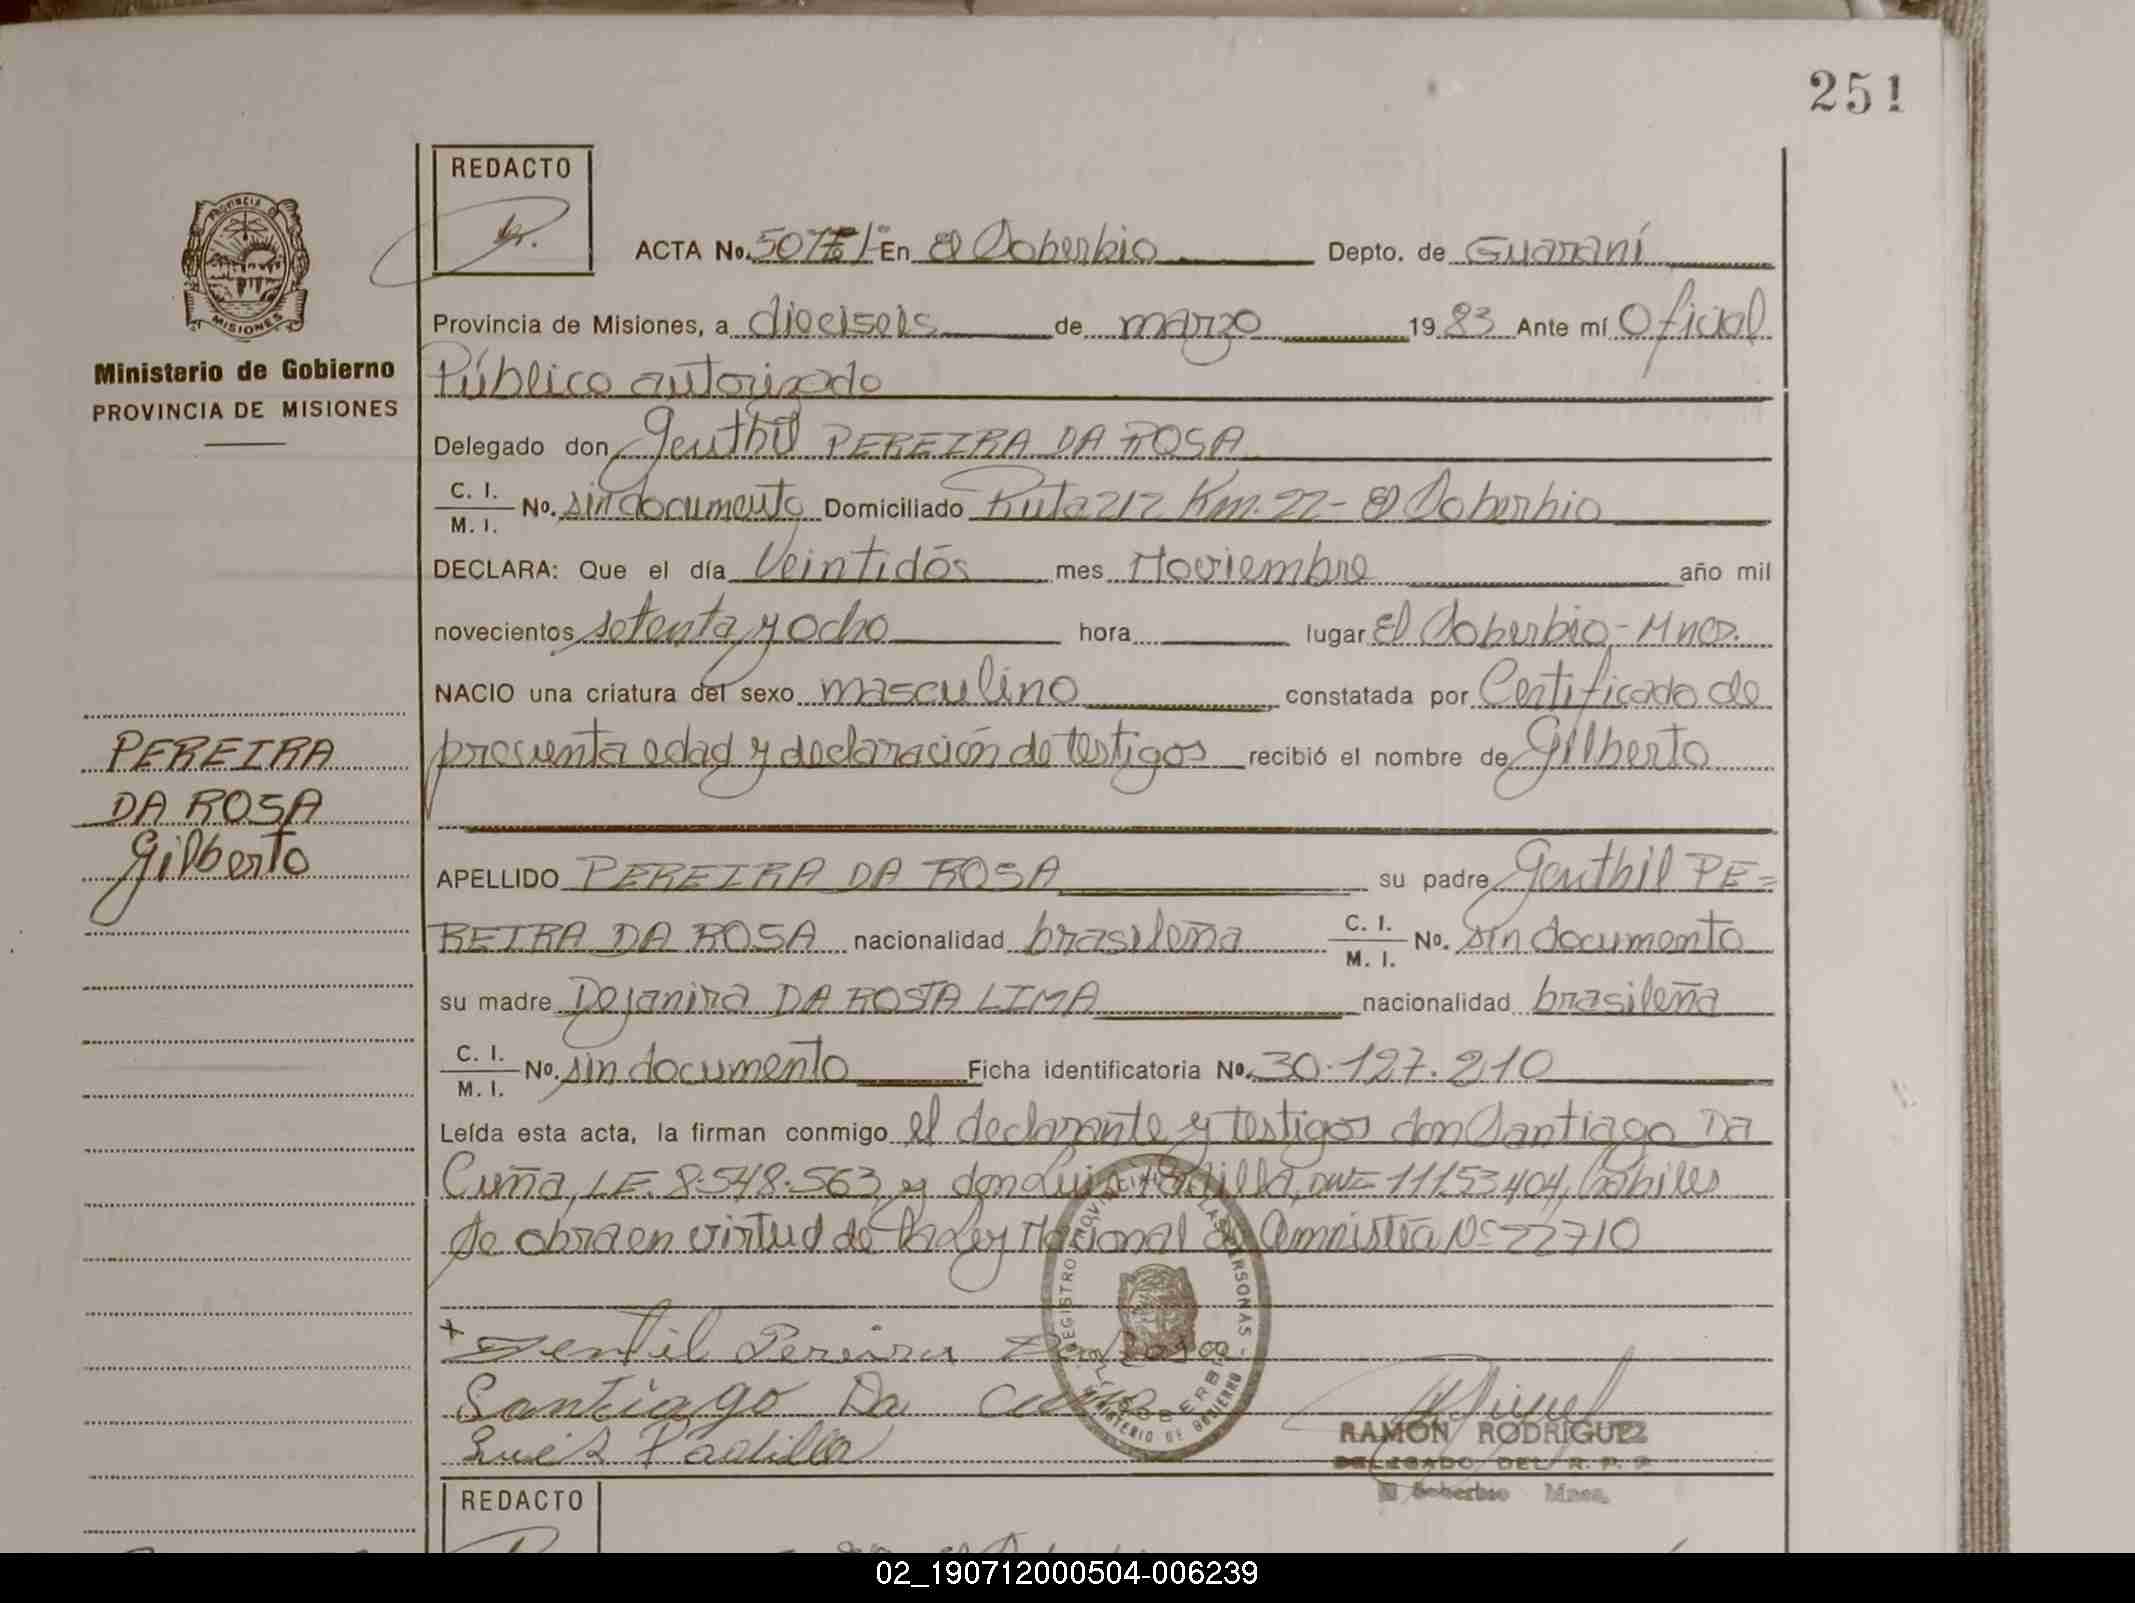 251
REDACTO
PROVINCIA DE
MISIONES
Ministerio de Gobierno
PROVINCIA DE MISIONES
ACTA No. En El Soberbio Depto. de Guaraní
Provincia de Misiones, a dieciseis de marzo 1983 Ante mí Oficial
Público autorizado
Delegado don Genthil PEREIRA DA ROSA
C. I.
M. I. No. sin documento Domiciliado Ruta 212 Km. 22 - El Soberbio
DECLARA: Que el día Veintidós mes Noviembre año mil
novecientos setenta y ocho hora lugar El Soberbio - Mnes.
NACIO una criatura del sexo masculino constatada por Certificado de
presunta edad y declaración de testigos recibió el nombre de Gilberto
PEREIRA
DA ROSA
Gilberto
APELLIDO PEREIRA DA ROSA su padre Genthil PE=
REIRA DA ROSA nacionalidad brasileña C. I.
M. I. No. sin documento
su madre Dejanira DA ROSA LIMA nacionalidad brasileña
C. I.
M. I. No. sin documento Ficha identificatoria No. 30.127.210
Leída esta acta, la firman conmigo el declarante y testigos don Santiago Da
Cuña, LE. 8.548.563, y don Luis Padilla, DNI= 11153404, hábiles
de obra en virtud de la Ley Nacional de Amnistía Nº 22710
+ Jentil Pereira Da Rosa
Santiago Da Cuña
Luis Padilla
REGISTRO PROVINCIAL DE LAS PERSONAS -
EL SOBERBIO
MINISTERIO DE GOBIERNO
RAMON RODRIGUEZ
DELEGADO DEL R. P. P.
El Soberbio Mnes.
REDACTO
02_190712000504-006239